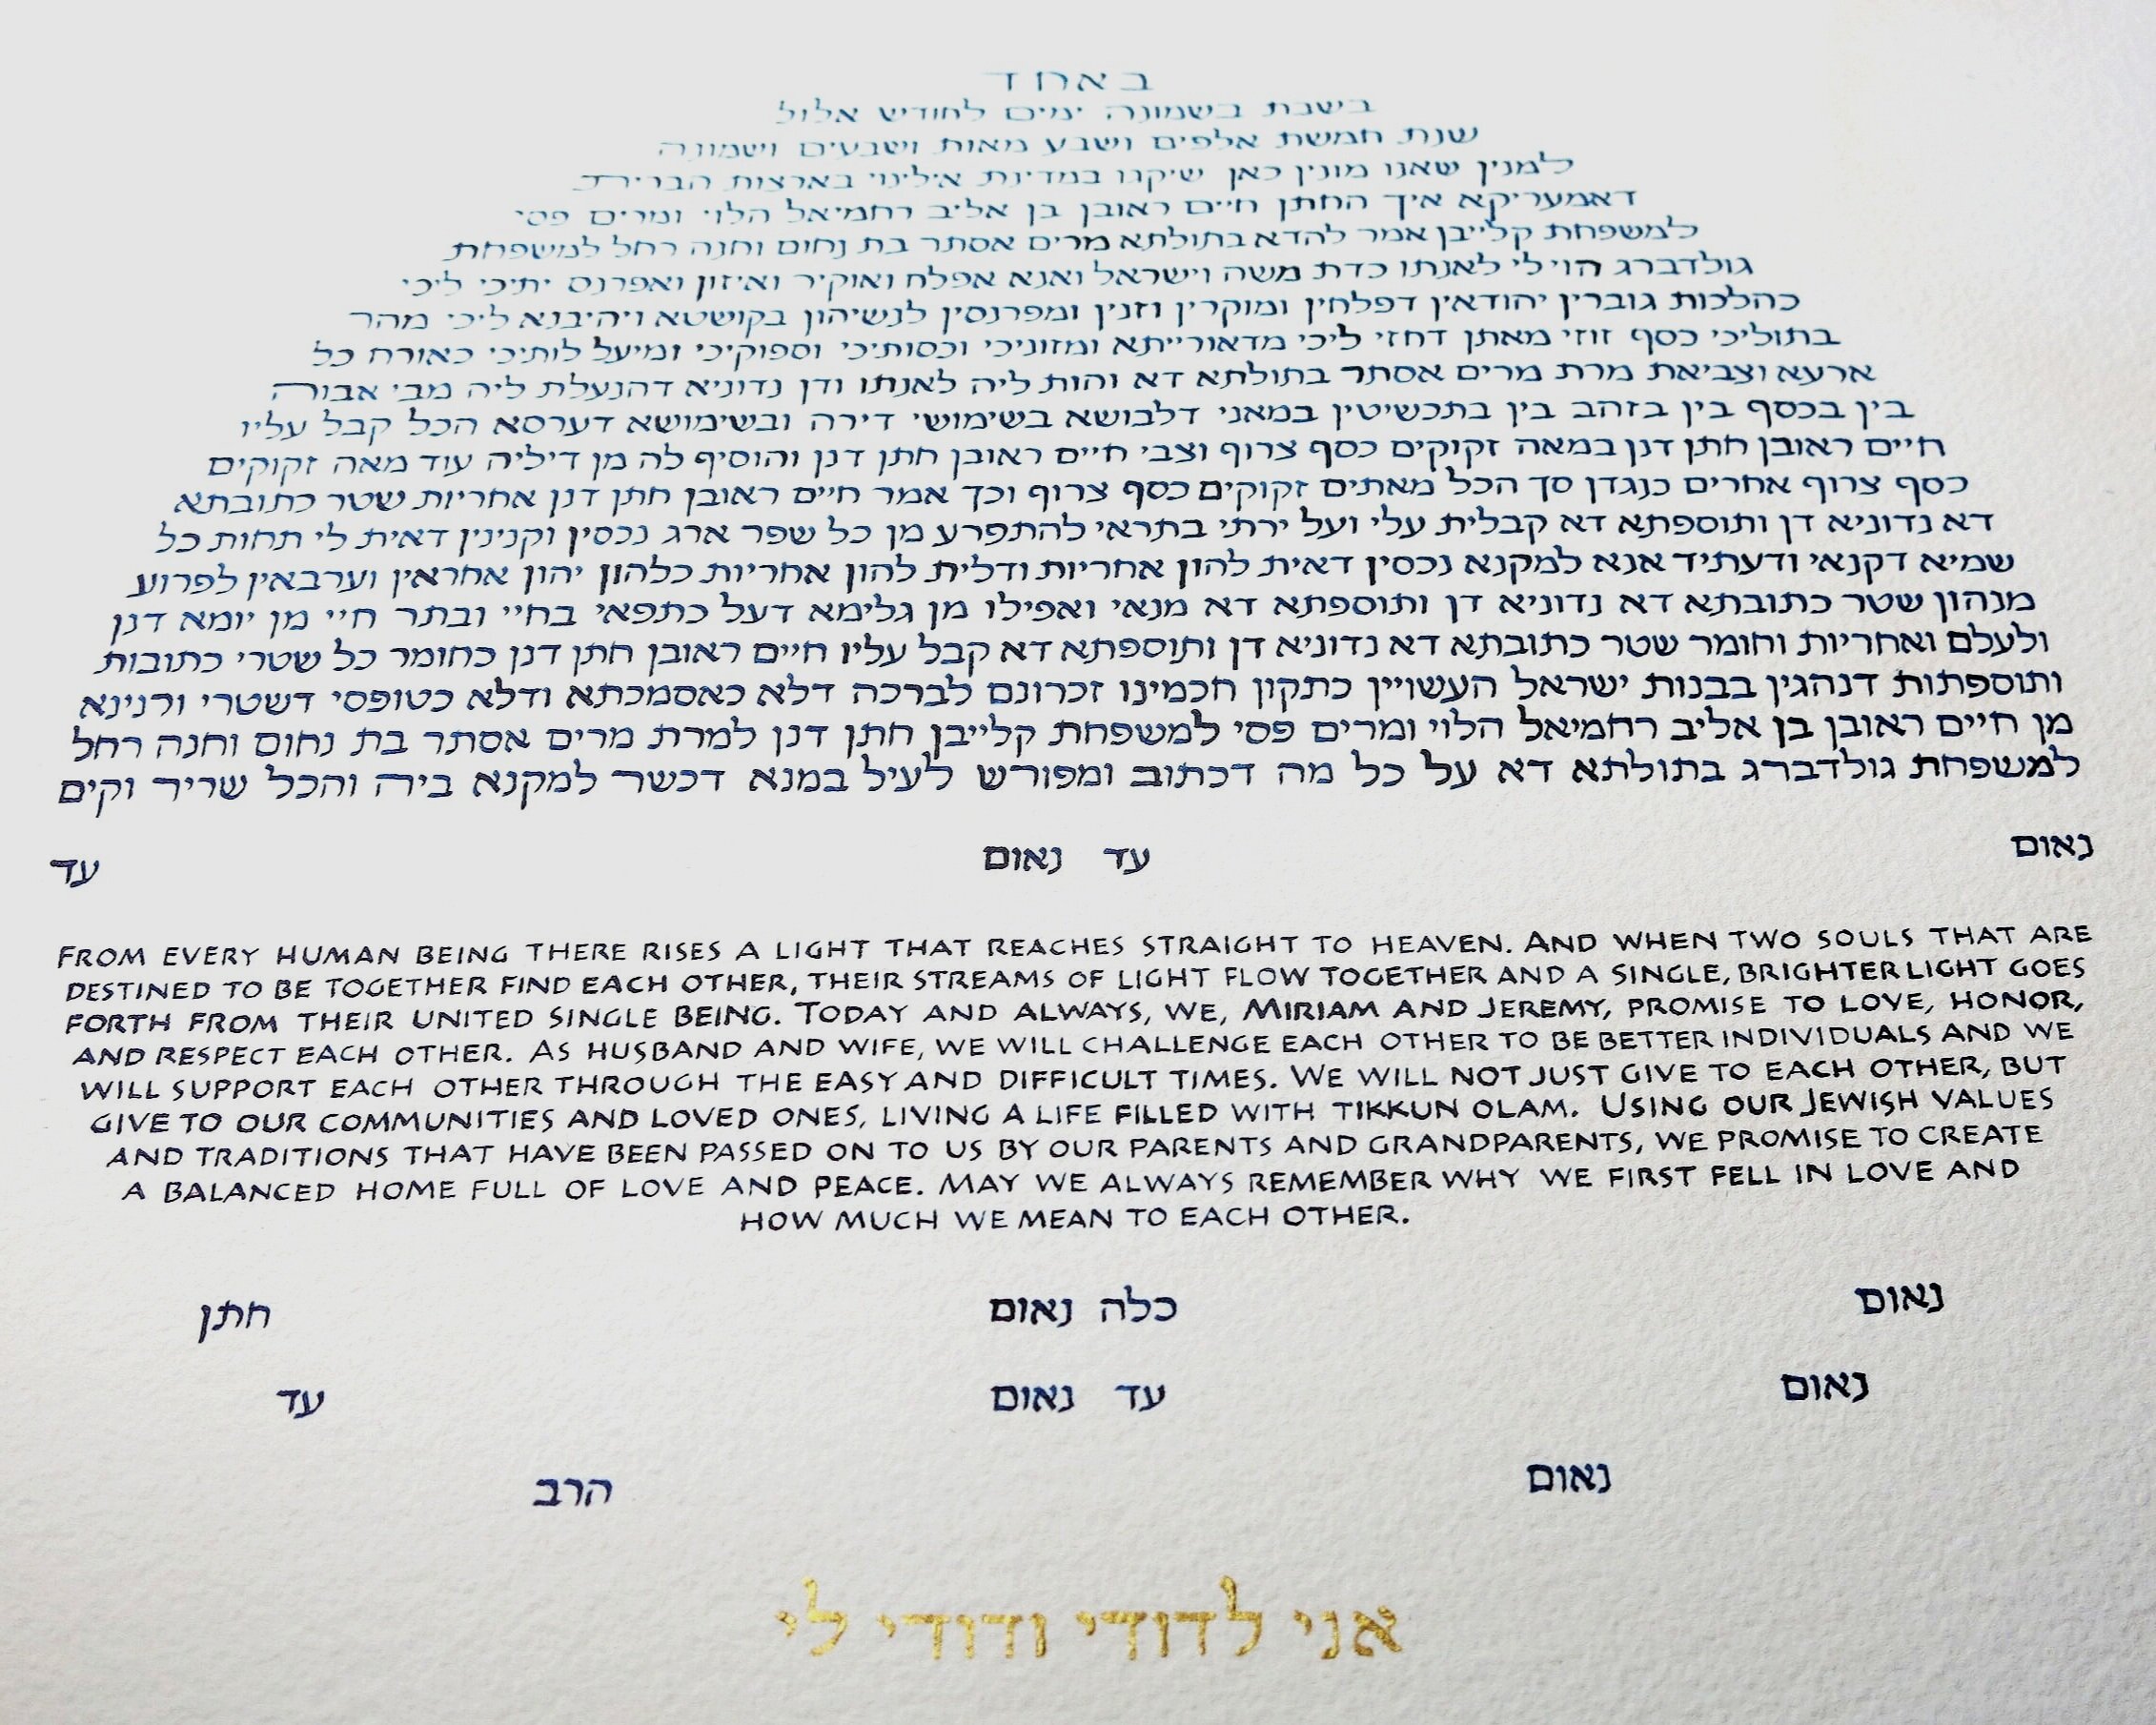 באחד
בשבת בשמונה ימים לחודש אלול
שנת חמשת אלפים ושבע מאות ושבעים ושמונה
למנין שאנו מונין כאן שיקגו במדינת אילינוי בארצות הברית
דאמעריקא איך החתן חיים ראובן בן אליב רחמיאל הלוי ומרים פסי
למשפחת קלייבן אמר להדא בתולתא מרים אסתר בת נחום וחנה רחל למשפחת
גולדברג הוי לי לאנתו כדת משה וישראל ואנא אפלח ואוקיר ואיזון ואפרנס יתיכי ליכי
כהלכות גוברין יהודאין דפלחין ומוקרין וזנין ומפרנסין לנשיהון בקושטא ויהיבנא ליכי מהר
בתוליכי כסף זוזי מאתן דחזי ליכי מדאורייתא ומזוניכי וכסותיכי וספוקיכי ומיעל לותיכי כאורח כל
ארעא וצביאת מרת מרים אסתר בתולתא דא והות ליה לאנתו ודן נדוניא דהנעלת ליה מבי אבוה
בין בכסף בין בזהב בין בתכשיטין במאני דלבושא בשימושי דירה ובשימושא דערסא הכל קבל עליו
חיים ראובן חתן דנן במאה זקוקים כסף צרוף וצבי חיים ראובן חתן דנן והוסיף לה מן דיליה עוד מאה זקוקים
כסף צרוף אחרים כנגדן סך הכל מאתים זקוקים כסף צרוף וכך אמר חיים ראובן חתן דנן אחריות שטר כתובתא
דא נדוניא דן ותוספתא דא קבלית עלי ועל ירתי בתראי להתפרע מן כל שפר ארג נכסין וקנינין דאית לי תחות כל
שמיא דקנאי ודעתיד אנא למקנא נכסין דאית להון אחריות ודלית להון אחריות כלהון יהון אחראין וערבאין לפרוע
מנהון שטר כתובתא דא נדוניא דן ותוספתא דא מנאי ואפילו מן גלימא דעל כתפאי בחיי ובתר חיי מן יומא דנן
ולעלם ואחריות וחומר שטר כתובתא דא נדוניא דן ותוספתא דא קבל עליו חיים ראובן חתן דנן כחומר כל שטרי כתובות
ותוספתות דנהגין בבנות ישראל העשויין כתקון חכמינו זכרונם לברכה דלא כאסמכתא ודלא כטופסי דשטרי וקנינא
מן חיים ראובן בן אליב רחמיאל הלוי ומרים פסי למשפחת קלייבן חתן דנן למרת מרים אסתר בת נחום וחנה רחל
למשפחת גולדברג בתולתא דא על כל מה דכתוב ומפורש לעיל במנא דכשר למקנא ביה והכל שריר וקים
נאום עד נאום עד
FROM EVERY HUMAN BEING THERE RISES A LIGHT THAT REACHES STRAIGHT TO HEAVEN. AND WHEN TWO SOULS THAT ARE
DESTINED TO BE TOGETHER FIND EACH OTHER, THEIR STREAMS OF LIGHT FLOW TOGETHER AND A SINGLE, BRIGHTER LIGHT GOES
FORTH FROM THEIR UNITED SINGLE BEING. TODAY AND ALWAYS, WE, MIRIAM AND JEREMY, PROMISE TO LOVE, HONOR,
AND RESPECT EACH OTHER. AS HUSBAND AND WIFE, WE WILL CHALLENGE EACH OTHER TO BE BETTER INDIVIDUALS AND WE
WILL SUPPORT EACH OTHER THROUGH THE EASY AND DIFFICULT TIMES. WE WILL NOT JUST GIVE TO EACH OTHER, BUT
GIVE TO OUR COMMUNITIES AND LOVED ONES, LIVING A LIFE FILLED WITH TIKKUN OLAM. USING OUR JEWISH VALUES
AND TRADITIONS THAT HAVE BEEN PASSED ON TO US BY OUR PARENTS AND GRANDPARENTS, WE PROMISE TO CREATE
A BALANCED HOME FULL OF LOVE AND PEACE. MAY WE ALWAYS REMEMBER WHY WE FIRST FELL IN LOVE AND
HOW MUCH WE MEAN TO EACH OTHER.
נאום כלה נאום חתן
נאום עד נאום עד
נאום הרב
אני לדודי ודודי לי